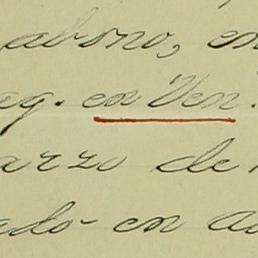 abono, en
ag. en Ven.
arzo de
ado en